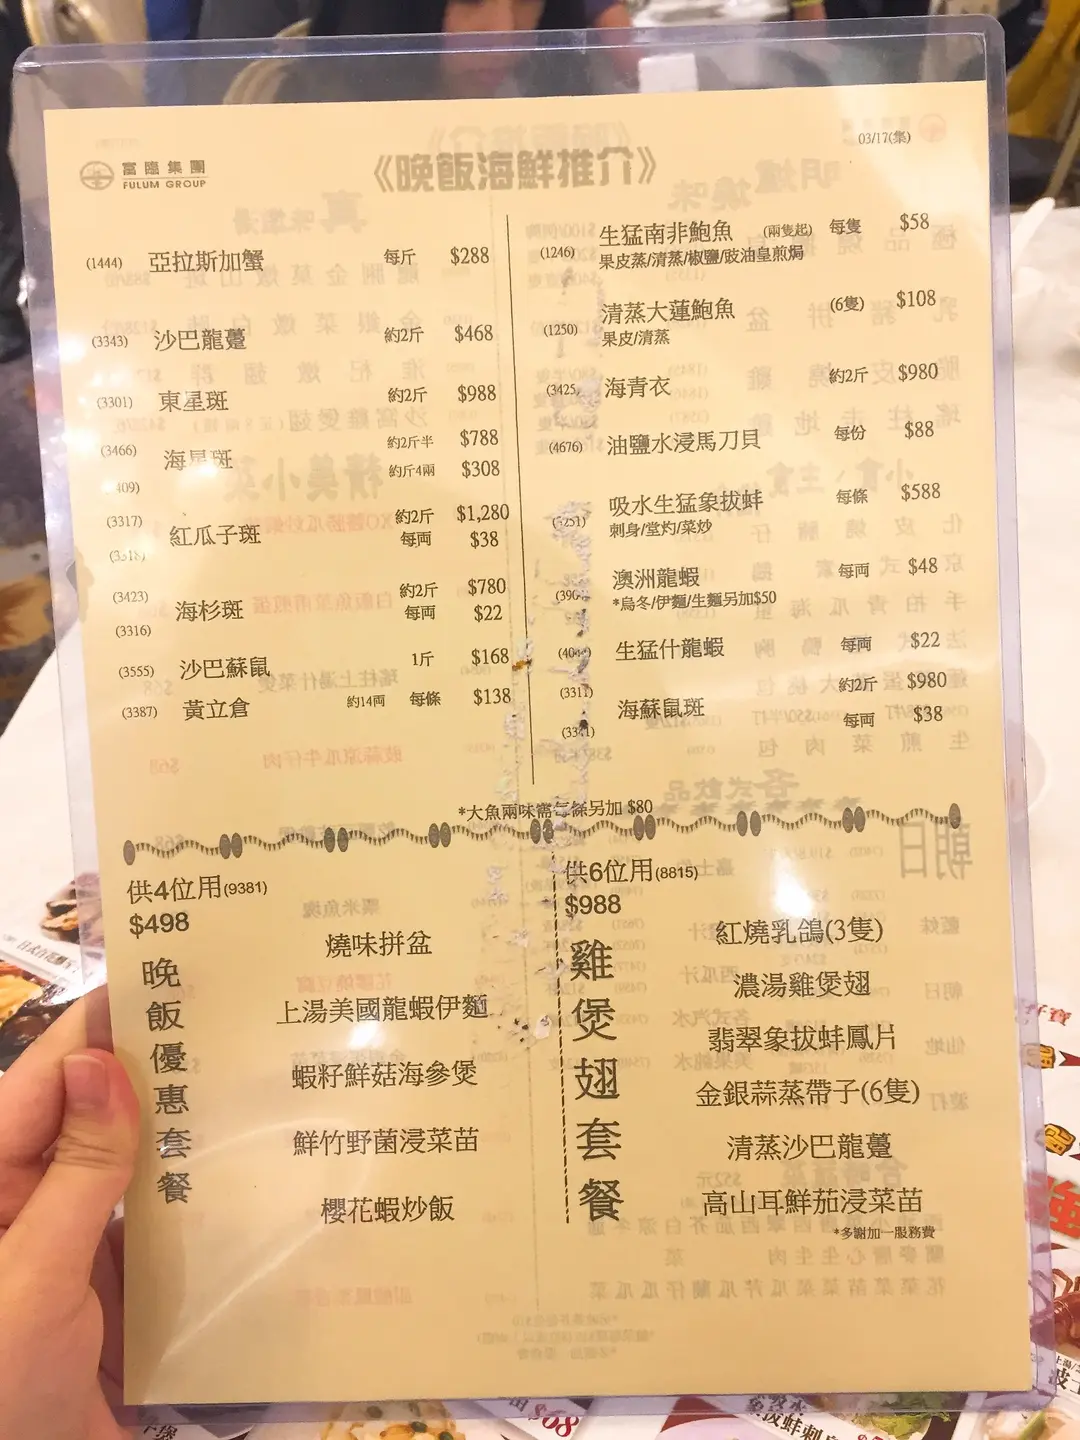 03/17(集)
富臨集團
FULUM GROUP
《晚飯海鮮推介》
(1444) 亞拉斯加蟹 每斤 $288
(3343) 沙巴龍躉 約2斤 $468
(3301) 東星斑 約2斤 $988
(3466) 海星斑 約2斤半 $788
409) 約斤4兩 $308
(3317) 紅瓜子斑 約2斤 $1,280
(3318) 每両 $38
(3423) 海杉斑 約2斤 $780
(3316) 每両 $22
(3555) 沙巴蘇鼠 1斤 $168
(3387) 黃立倉 約14両 每條 $138
(1246) 生猛南非鮑魚 (兩隻起) 每隻 $58
果皮蒸/清蒸/椒鹽/豉油皇煎焗
(1250) 清蒸大蓮鮑魚 (6隻) $108
果皮/清蒸
(3425) 海青衣 約2斤 $980
(4676) 油鹽水浸馬刀貝 每份 $88
(3251) 吸水生猛象拔蚌 每條 $588
刺身/堂灼/菜炒
澳洲龍蝦 每両 $48
*烏冬/伊麵/生麵另加$50
生猛什龍蝦 每両 $22
(3311) 海蘇鼠斑 約2斤 $980
(3341) 每両 $38
*大魚兩味需每條另加 $80
供4位用(9381)
$498
晚飯優惠套餐
燒味拼盆
上湯美國龍蝦伊麵
蝦籽鮮菇海參煲
鮮竹野菌浸菜苗
櫻花蝦炒飯
供6位用(8815)
$988
雞煲翅套餐
紅燒乳鴿(3隻)
濃湯雞煲翅
翡翠象拔蚌鳳片
金銀蒜蒸帶子(6隻)
清蒸沙巴龍躉
高山耳鮮茄浸菜苗
*多謝加一服務費